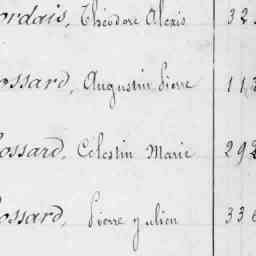 ordais, Théodore Alexis 32
ossard, Augustin Pierre 113
ossard, Celestin Marie 292
ossard, Pierre Julien 336